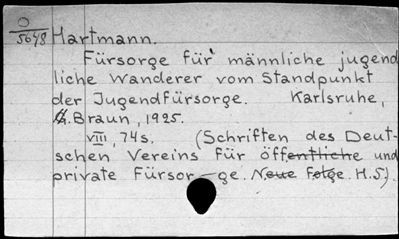 O
5648 Hartmann.
Fürsorge für männliche jugend
liche Wanderer vom Standpunkt
der Jugendfürsorge. Karlsruhe,
G. Braun, 1925.
VIII, 74s. (Schriften des Deut-
schen Vereins für öffentliche und
private Fürsor-ge. Neue Folge. H.5).